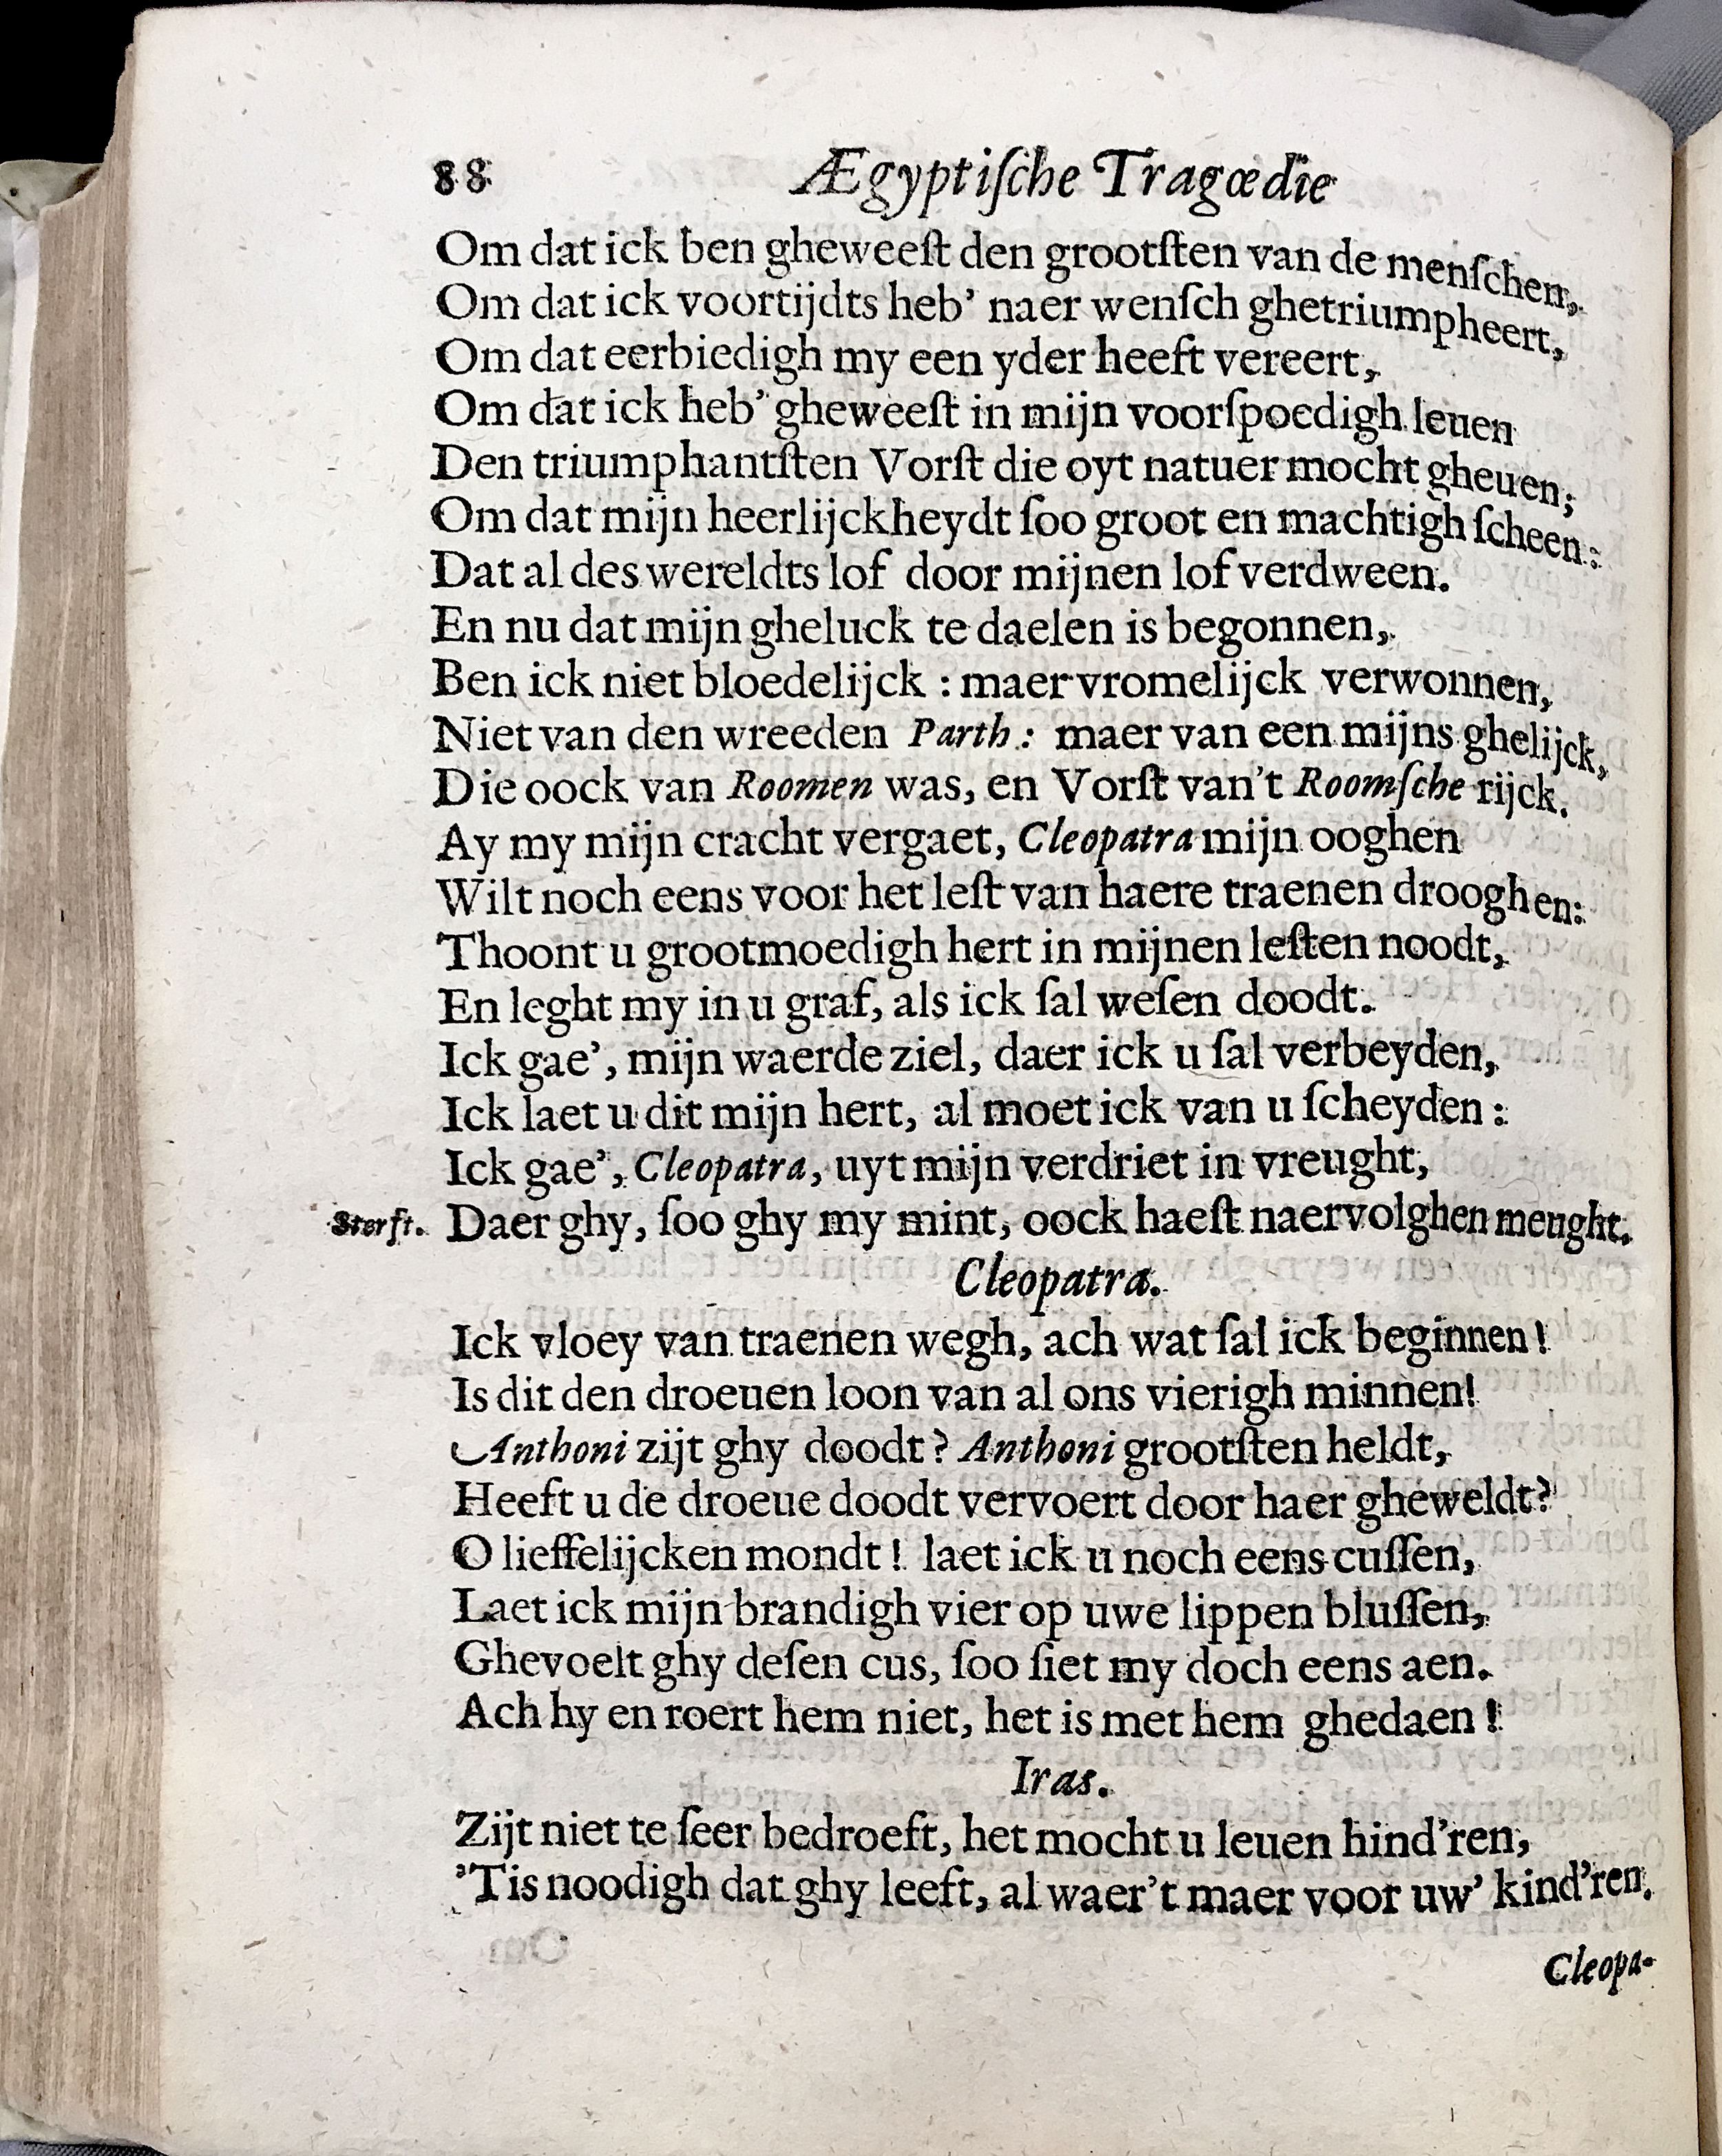 88 Ægyptiſche Tragœdie
Om dat ick ben gheweeſt den grootſten van de menſchen,
Om dat ick voortijdts heb’ naer wenſch ghetriumpheert,
Om dat eerbiedigh my een yder heeft vereert,
Om dat ick heb’ gheweeſt in mijn voorſpoedigh leuen
Den triumphantſten Vorſt die oyt natuer mocht gheuen;
Om dat mijn heerlijckheydt ſoo groot en machtigh ſcheen:
Dat al des wereldts lof door mijnen lof verdween.
En nu dat mijn gheluck te daelen is begonnen,
Ben ick niet bloedelijck : maer vromelijck verwonnen,
Niet van den wreeden Parth : maer van een mijns ghelijck,
Die oock van Roomen was, en Vorſt van’t Roomſche rijck.
Ay my mijn cracht vergaet, Cleopatra mijn ooghen
Wilt noch eens voor het leſt van haere traenen drooghen:
Thoont u grootmoedigh hert in mijnen leſten noodt,
En leght my in u graf, als ick ſal weſen doodt.
Ick gae’, mijn waerde ziel, daer ick u ſal verbeyden,
Ick laet u dit mijn hert, al moet ick van u ſcheyden :
Ick gae’, Cleopatra, uyt mijn verdriet in vreught,
Sterft. Daer ghy, ſoo ghy my mint, oock haeſt naervolghen meught.
Cleopatra.
Ick vloey van traenen wegh, ach wat ſal ick beginnen!
Is dit den droeuen loon van al ons vierigh minnen!
Anthoni zijt ghy doodt? Anthoni grootſten heldt,
Heeft u de droeue doodt vervoert door haer gheweldt?
O lieffelijcken mondt! laet ick u noch eens cuſſen,
Laet ick mijn brandigh vier op uwe lippen bluſſen,
Ghevoelt ghy deſen cus, ſoo ſiet my doch eens aen.
Ach hy en roert hem niet, het is met hem ghedaen!
Iras.
Zijt niet te ſeer bedroeft, het mocht u leuen hind’ren,
’Tis noodigh dat ghy leeft, al waer’t maer voor uw’ kind’ren.
Cleopa-